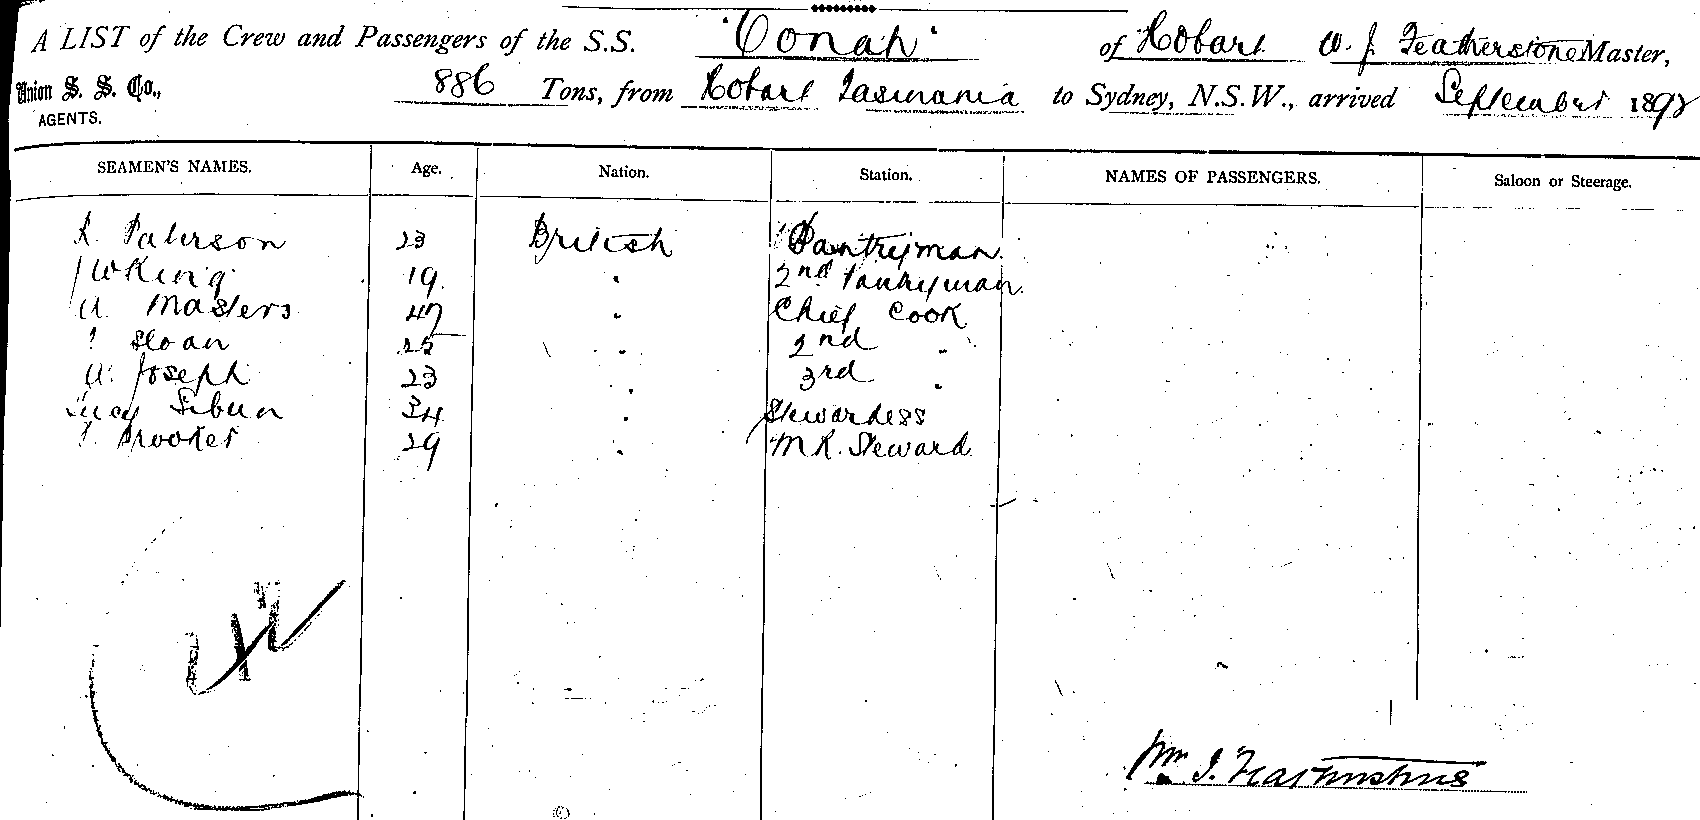 A LIST of the Crew and Passengers of the S.S. "Oonah" of Hobart W. J. Featherstone Master,
Union S. S. Co., AGENTS. 886 Tons, from Hobart Tasmania to Sydney, N.S.W., arrived September 1892
SEAMEN'S NAMES. Age. Nation. Station. NAMES OF PASSENGERS. Saloon or Steerage.
Paterson 23 British Pantryman
J W King 19 " 2nd Pantryman
A. Masters 47 " Chief Cook
Sloan 25 " 2nd "
A. Joseph 23 " 3rd "
Lucy Sibun 34 " Stewardess
Brooker 29 " M R. Steward
Wm J. Featherstone